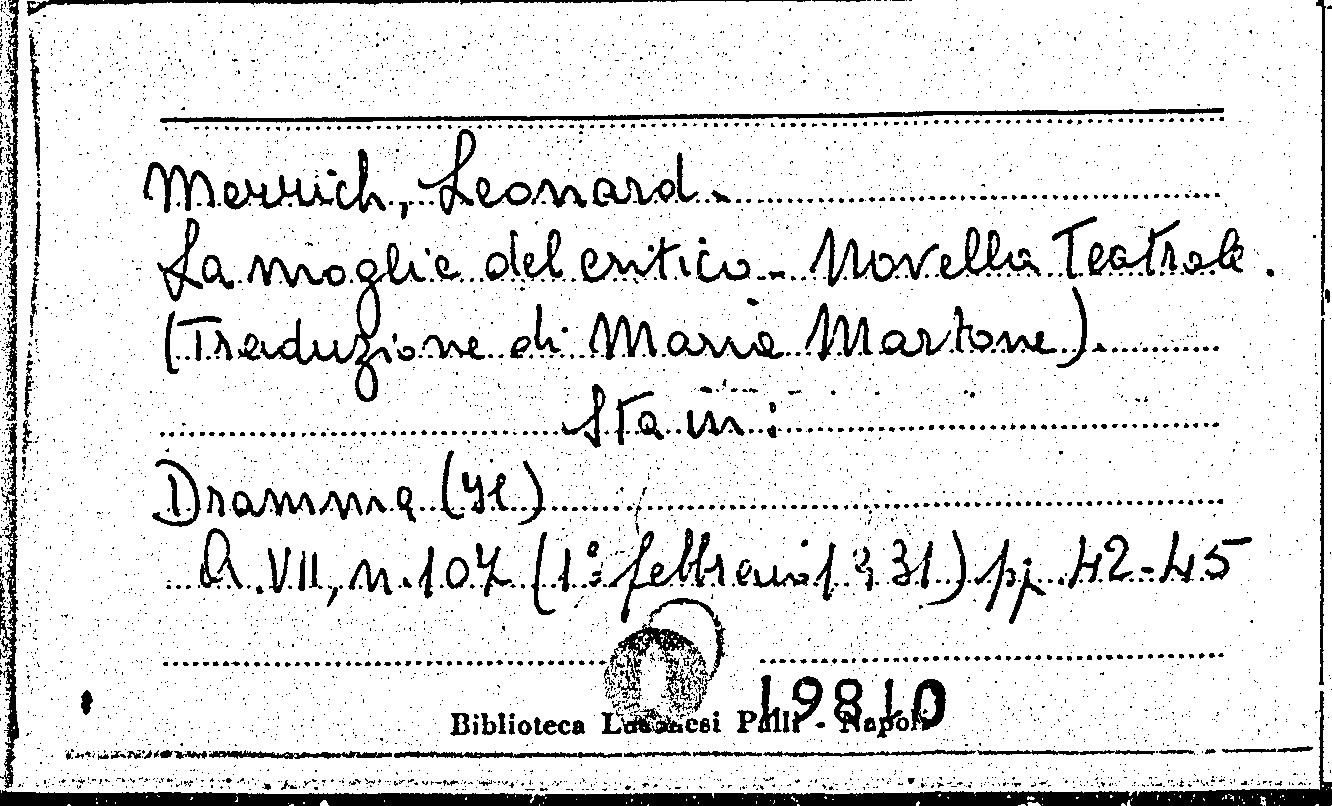 Merrich, Leonard.
La moglie del critico - Novella Teatrale.
(Traduzione di Maria Martone).
Sta in:
Dramma (Il)
A. VII, n. 107 (1° febbraio 1931) pp. 42-45
19810
Biblioteca Lucchesi Palli - Napoli